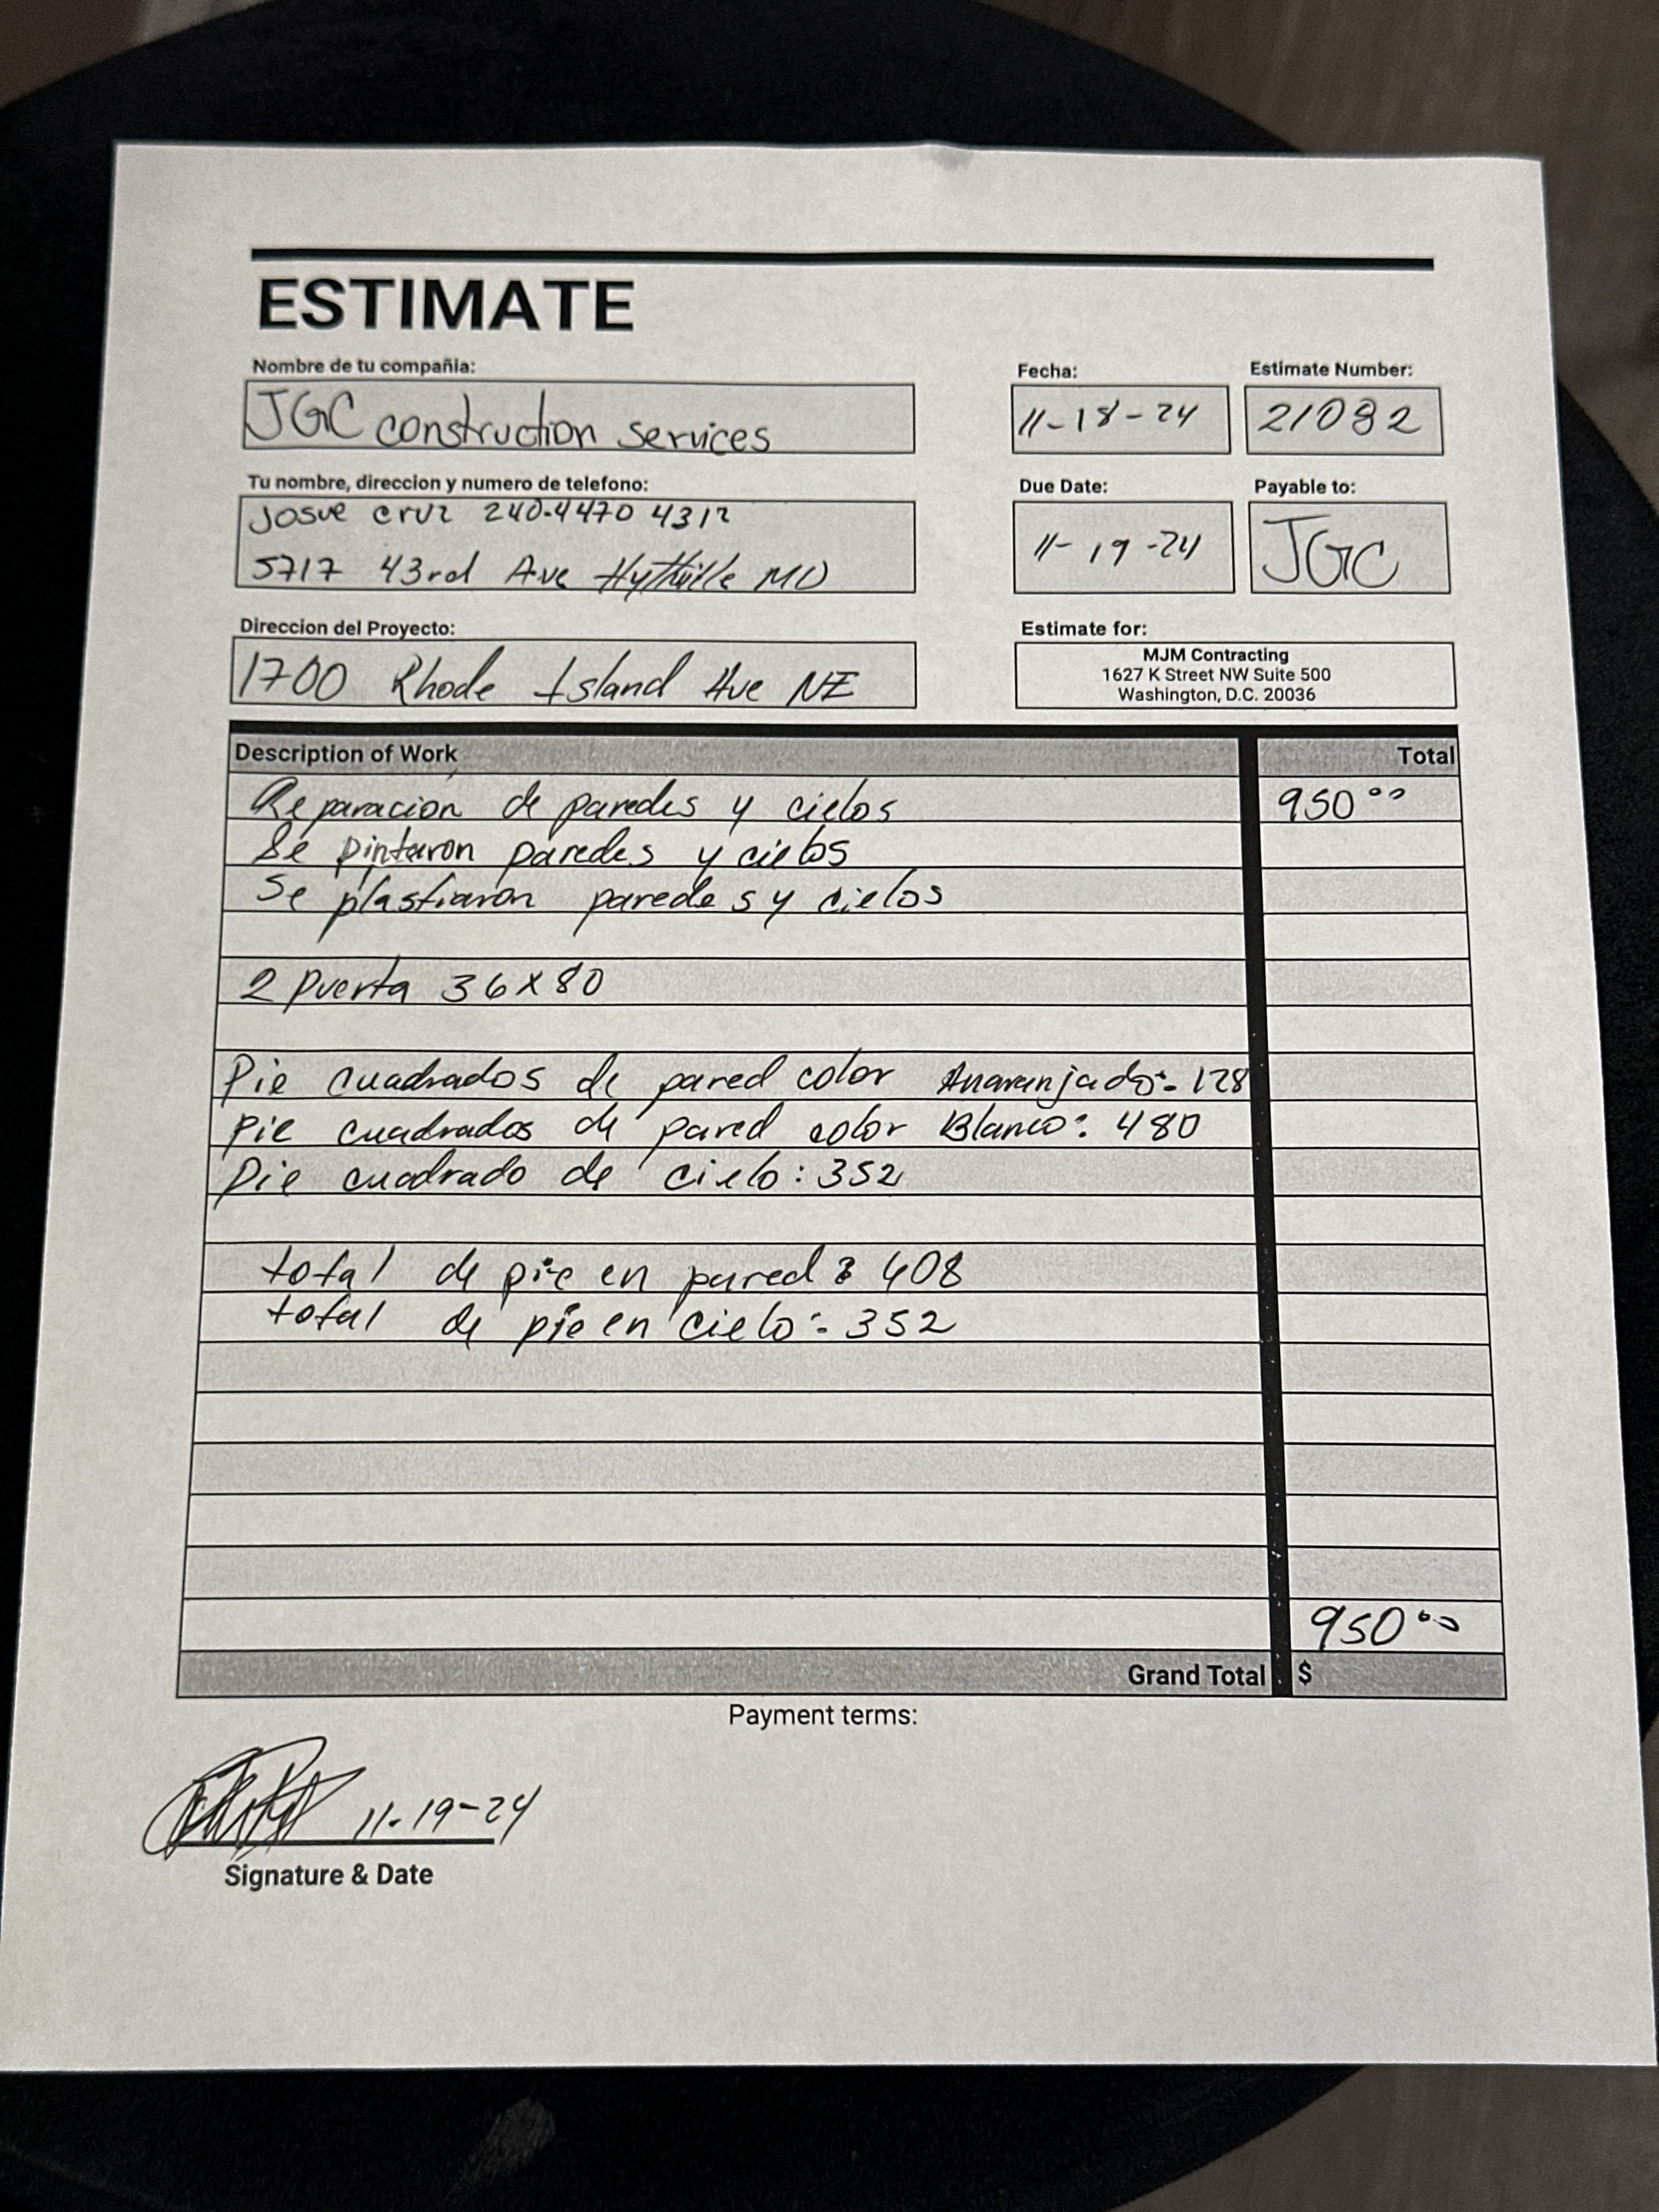 ESTIMATE
Nombre de tu compañia:
JGC construction services
Fecha:
11-18-24
Estimate Number:
21082
Tu nombre, direccion y numero de telefono:
Josue cruz 240-4470 4312
5717 43rd Ave MD
Due Date:
11-19-24
Payable to:
JGC
Direccion del Proyecto:
1700 Rhode Island Ave NE
Estimate for:
MJM Contracting
1627 K Street NW Suite 500
Washington, D.C. 20036
Description of Work Total
Reparacion de paredes y cielos 950⁰⁰
Se pintaron paredes y cielos
Se plastiaron paredes y cielos
2 puerta 36x80
Pie cuadrados de pared color Anaranjado: 128
pie cuadrados de pared color Blanco: 480
Pie cuadrado de cielo: 352
total de pie en pared: 408
total de pie en cielo: 352
950⁰⁰
Grand Total $
Payment terms:
11-19-24
Signature & Date